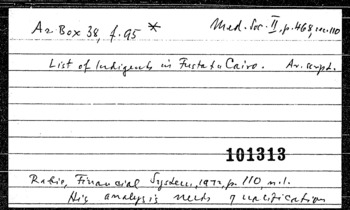 Ar. Box 38, f. 95 * Med. Soc. II, p. 468, n. 110
List of Indigents in Fustat-Cairo. Ar. script.
101313
Rabie, Financial System, 1972, p. 110, n. 1.
His analysis needs rectification